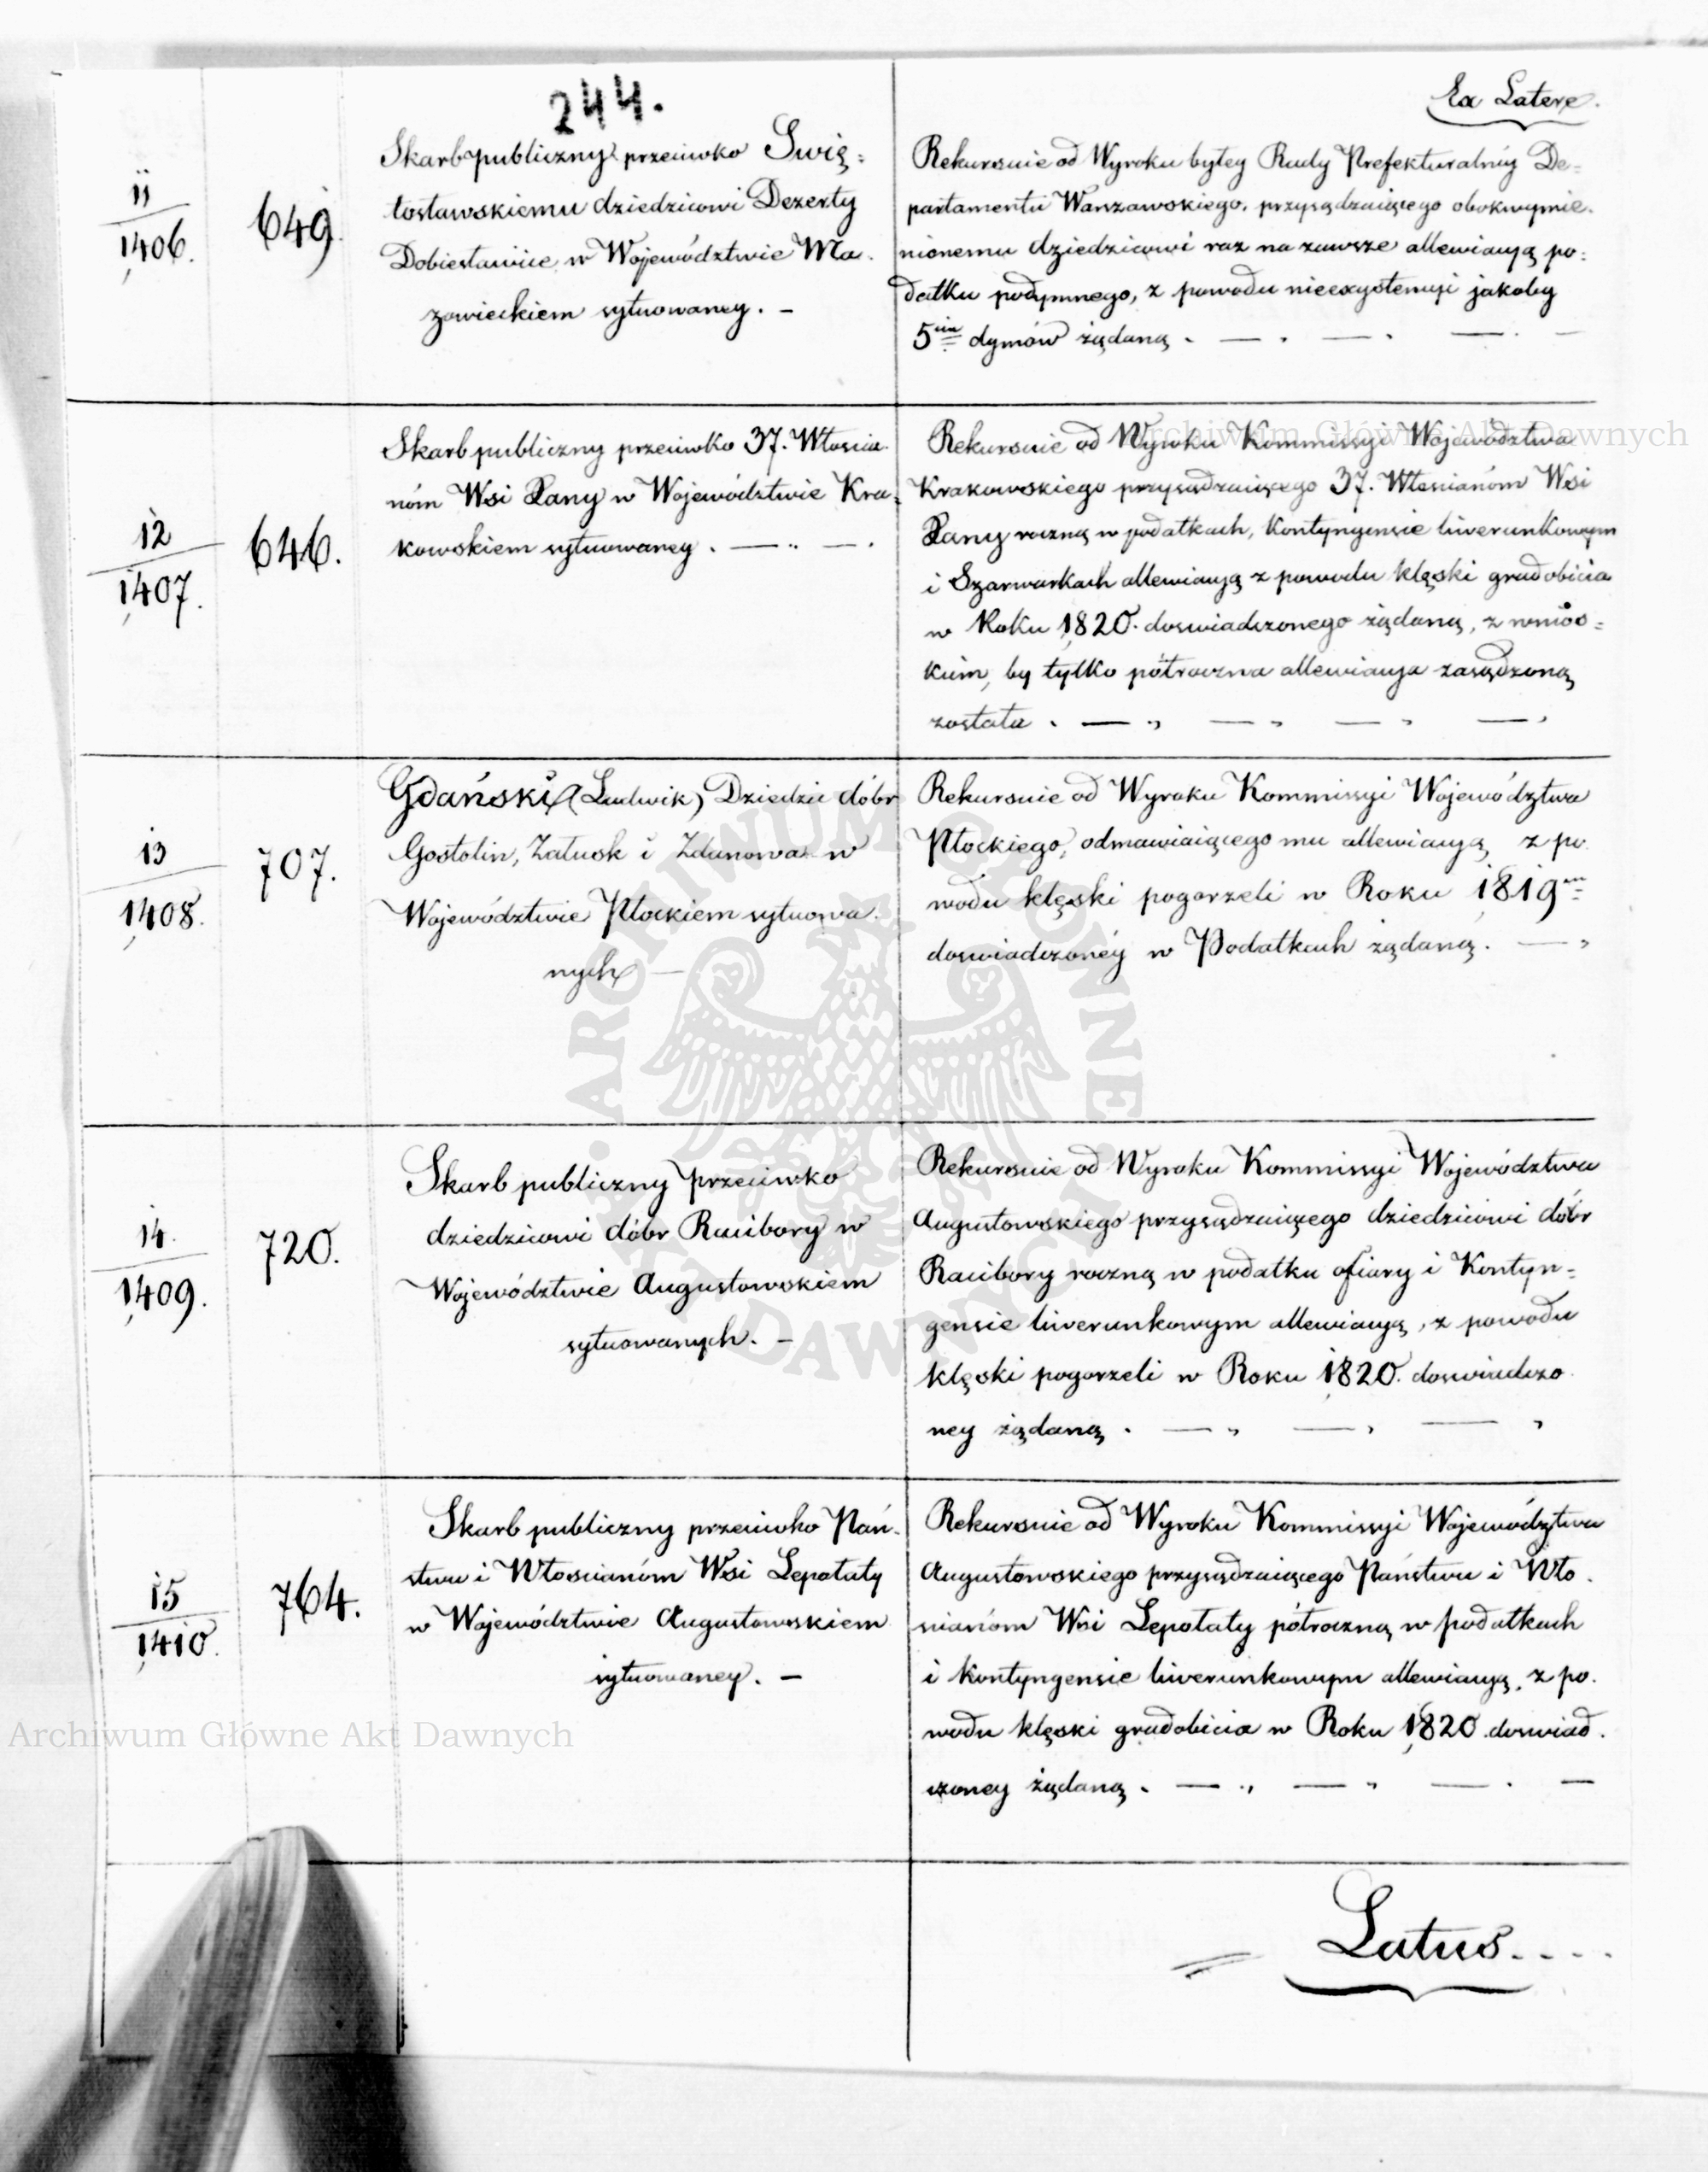 244.
Ex Latere.
11
1406.
649.
Skarb publiczny przeciwko Swię=
tosławskiemu dziedzicowi Dezerty
Dobiesławice w Województwie Ma=
zowieckiem sytuowaney. —
Rekursuie od Wyroku byłey Rady Prefekturalnéy De=
partamentu Warszawskiego, przysądzaiącego obokwymie=
nionemu dziedzicowi raz na zawsze allewiacyą po=
datku podymnego, z powodu nieexystencyi jakoby
5ciu dymów żądaną. — . — . — . —
12
1407.
646.
Skarb publiczny przeciwko 37. Włościa=
nóm Wsi Łany w Województwie Kra=
kowskiem sytuowaney. — „ — .
Rekursuie od Wyroku Kommissyi Województwa
Krakowskiego przysądzaiącego 37. Włościanóm Wsi
Łany roczną w podatkach, Kontyngensie liwerunkowym
i Szarwarkach allewiacyą z powodu klęski gradobicia
w Roku 1820. doswiadczonego żądaną, z wnios=
kiem, by tylko półroczna allewiacya zasądzoną
została. — „ — „ — „ — „
13
1408.
707.
Gdański (Ludwik) Dziedzic dóbr
Gostolin, Załusk i Zdunowa w
Województwie Płockiem sytuowa=
nych —
Rekursuie od Wyroku Kommissyi Województwa
Płockiego, odmawiaiącego mu allewiacyą z po=
wodu klęski pogorzeli w Roku 1819m
doswiadczonéy w Podatkach żądaną. — „
14.
1409.
720.
Skarb publiczny przeciwko
dziedzicowi dóbr Racibory w
Województwie Augustowskiem
sytuowanych. —
Rekursuie od Wyroku Kommissyi Województwa
Augustowskiego przysądzaiącego dziedzicowi dóbr
Racibory roczną w podatku ofiary i Kontyn=
gensie liwerunkowym allewiacyą, z powodu
klęski pogorzeli w Roku 1820. doswiadczo=
ney żądaną. — „ — „ — „
15
1410.
764.
Skarb publiczny przeciwko Pań=
stwu i Włoscianóm Wsi Lepotaty
w Województwie Augustowskiem
sytuowaney. —
Rekursuie od Wyroku Kommissyi Województwa
Augustowskiego przysądzaiącego Państwu i Wło=
scianóm Wsi Lepotaty półroczną w podatkach
i kontyngensie liwerunkowym allewiacyą, z po=
wodu klęski gradobicia w Roku 1820. doswiad=
czoney żądaną. — „ — „ — . —
Latus. . . .
Archiwum Główne Akt Dawnych
Archiwum Główne Akt Dawnych
ARCHIWUM GŁÓWNE AKT DAWNYCH